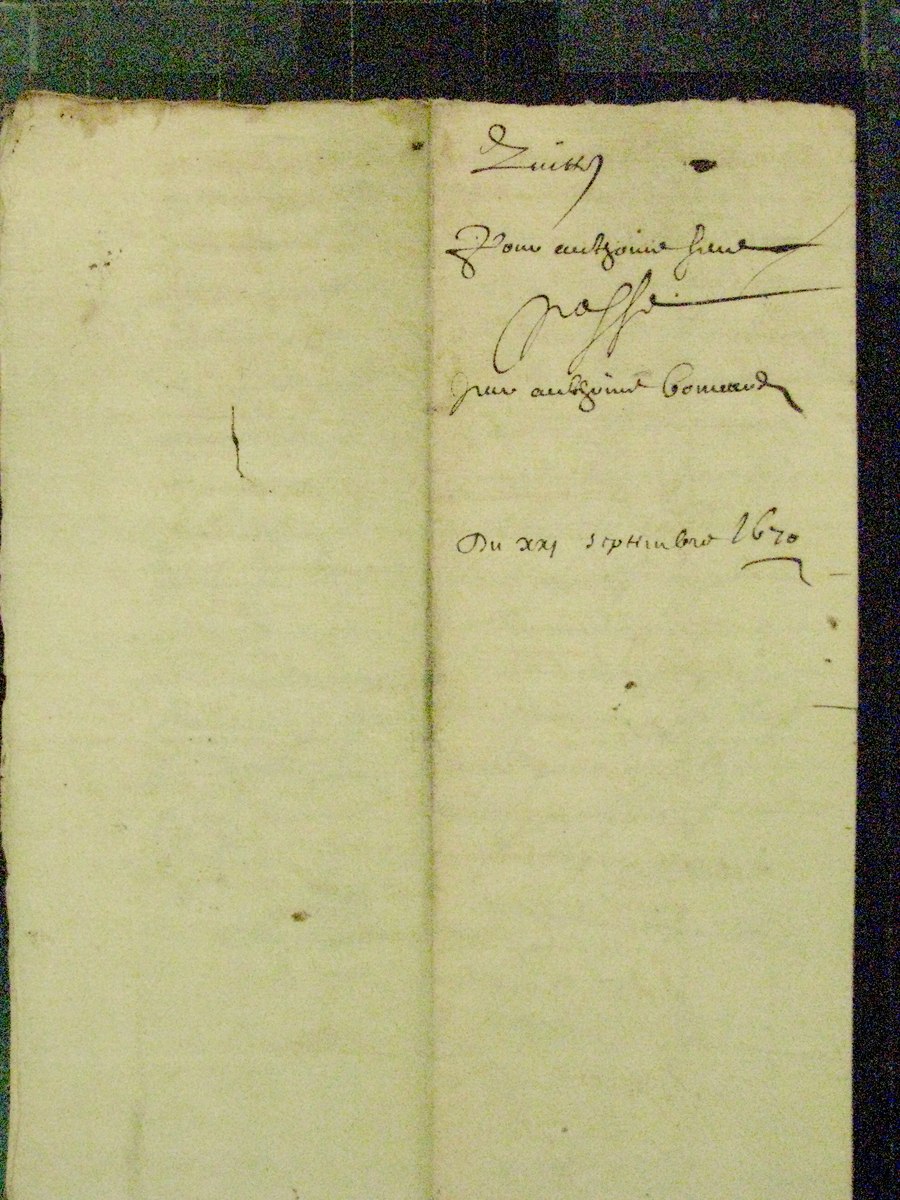 Quitt
Pour anthoine
passé
par anthoine
Du xxj septembre 1670